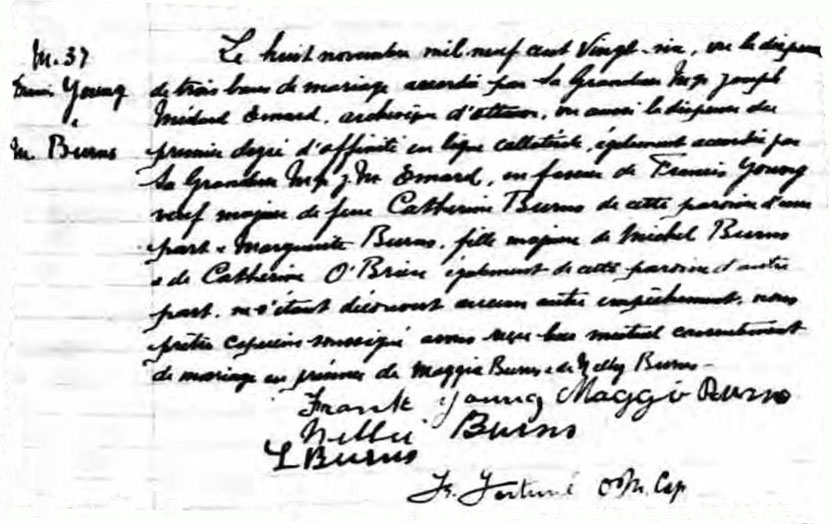 M. 37
Francis Young
&
M. Burns
Le huit novembre mil neuf cent vingt-six, vu la dispense
de trois bans de mariage accordée par Sa Grandeur Mgr Joseph
Médard Emard, archevêque d'Ottawa, vu aussi la dispense du
premier degré d'affinité en ligne collatérale, également accordée par
Sa Grandeur Mgr J. M. Emard, en faveur de Francis Young
veuf majeur de feue Catherine Burns de cette paroisse d'une
part & Marguerite Burns, fille majeure de Michel Burns
& de Catherine O'Brien également de cette paroisse d'autre
part, ne s'étant découvert aucun autre empêchement, nous
prêtre capucin soussigné avons reçu leur mutuel consentement
de mariage en présence de Maggie Burns & de Nelly Burns -
Frank Young Maggie Burns
Nellie Burns
L Burns
Fr. Fortuné O.M.Cap